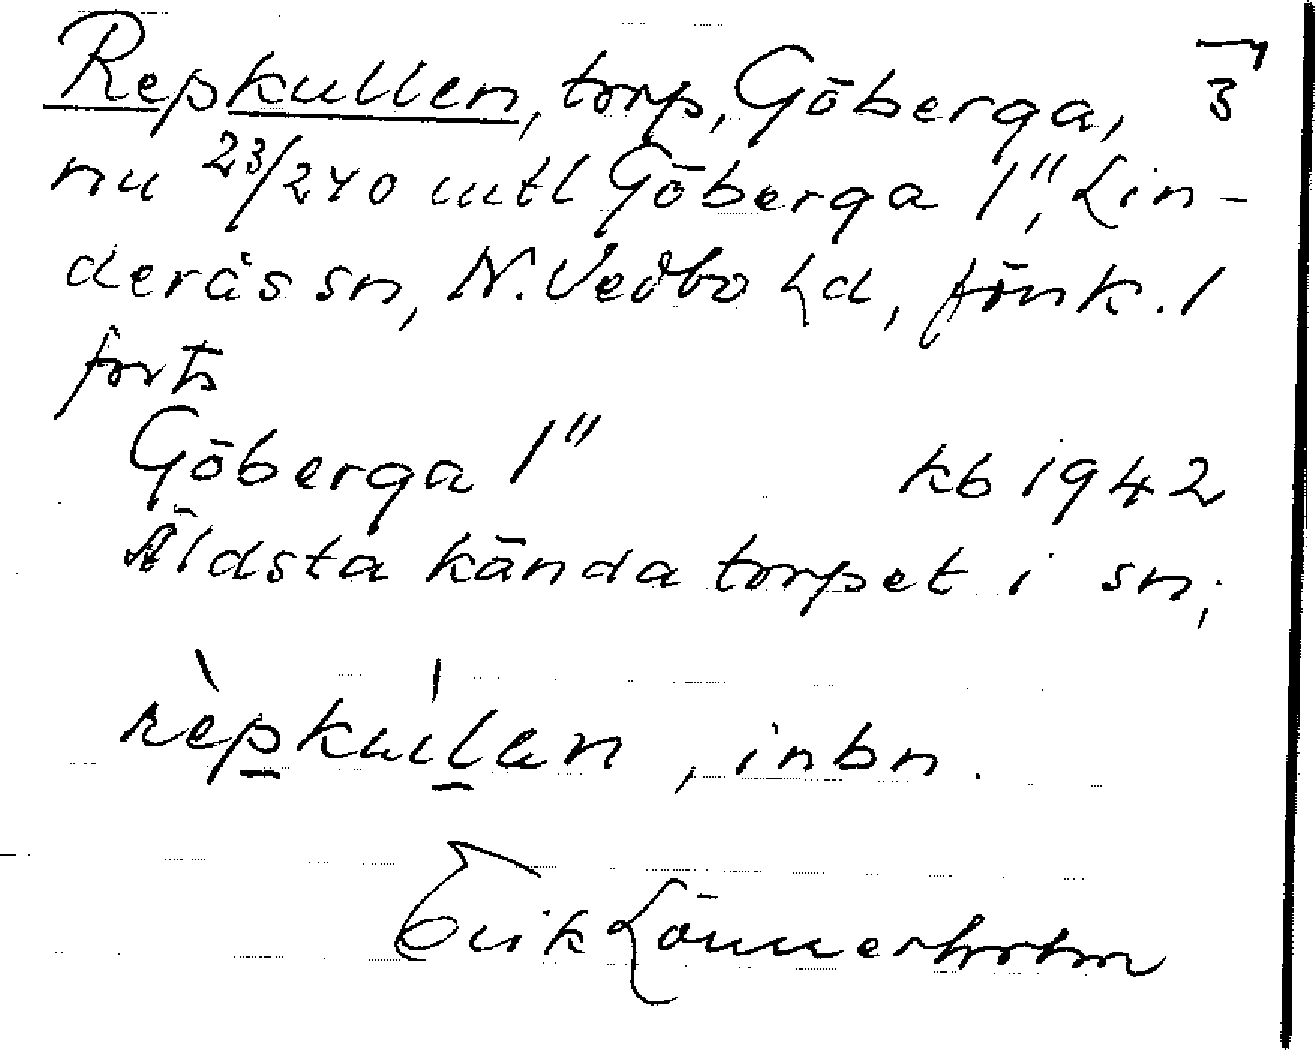 Repkullen, torp, Göberga, 3
nu 23/240 mtl Göberga 1", Lin-
derås sn, N. Vedbo hd, Jönk. l
forts
Göberga 1" kb 1942
Äldsta kända torpet i sn;
rèpkulan, inbn.
Erik Lönnerholm